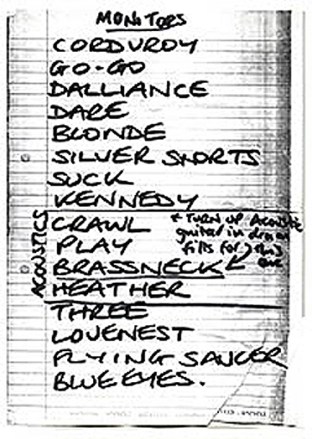 MONITORS
CORDUROY
GO-GO
DALLIANCE
DARE
BLONDE
SILVER SHORTS
SUCK
KENNEDY
ACOUSTICS
CRAWL
PLAY
BRASSNECK
HEATHER
* TURN UP ACOUSTIC
guitar in drum
fills for this
one
THREE
LOVENEST
FLYING SAUCER
BLUE EYES.